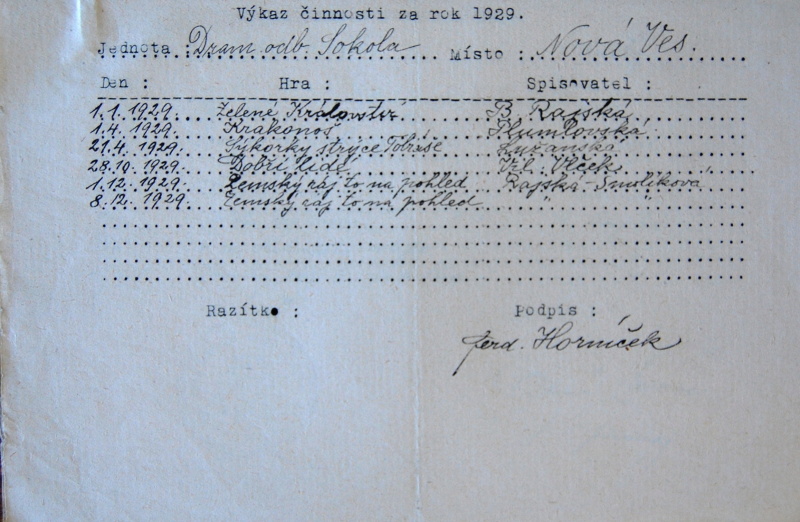 Výkaz činnosti za rok 1929.
Jednota : Dram. odb. Sokola Místo : Nová Ves.
Den : Hra : Spisovatel :
1.1. 1929. Zelené Království B. Rajská
1.4. 1929. Krakonoš Plumlovská
21.4. 1929. Sýkorky strýce Tobiáše Lužanská
28.10. 1929. Dobří lidé Vlček
1.12. 1929. Zemský ráj to na pohled Rajská-Smolíková
8.12. 1929. Zemský ráj to na pohled " "
Razítko : Podpis :
Ferd. Horníček